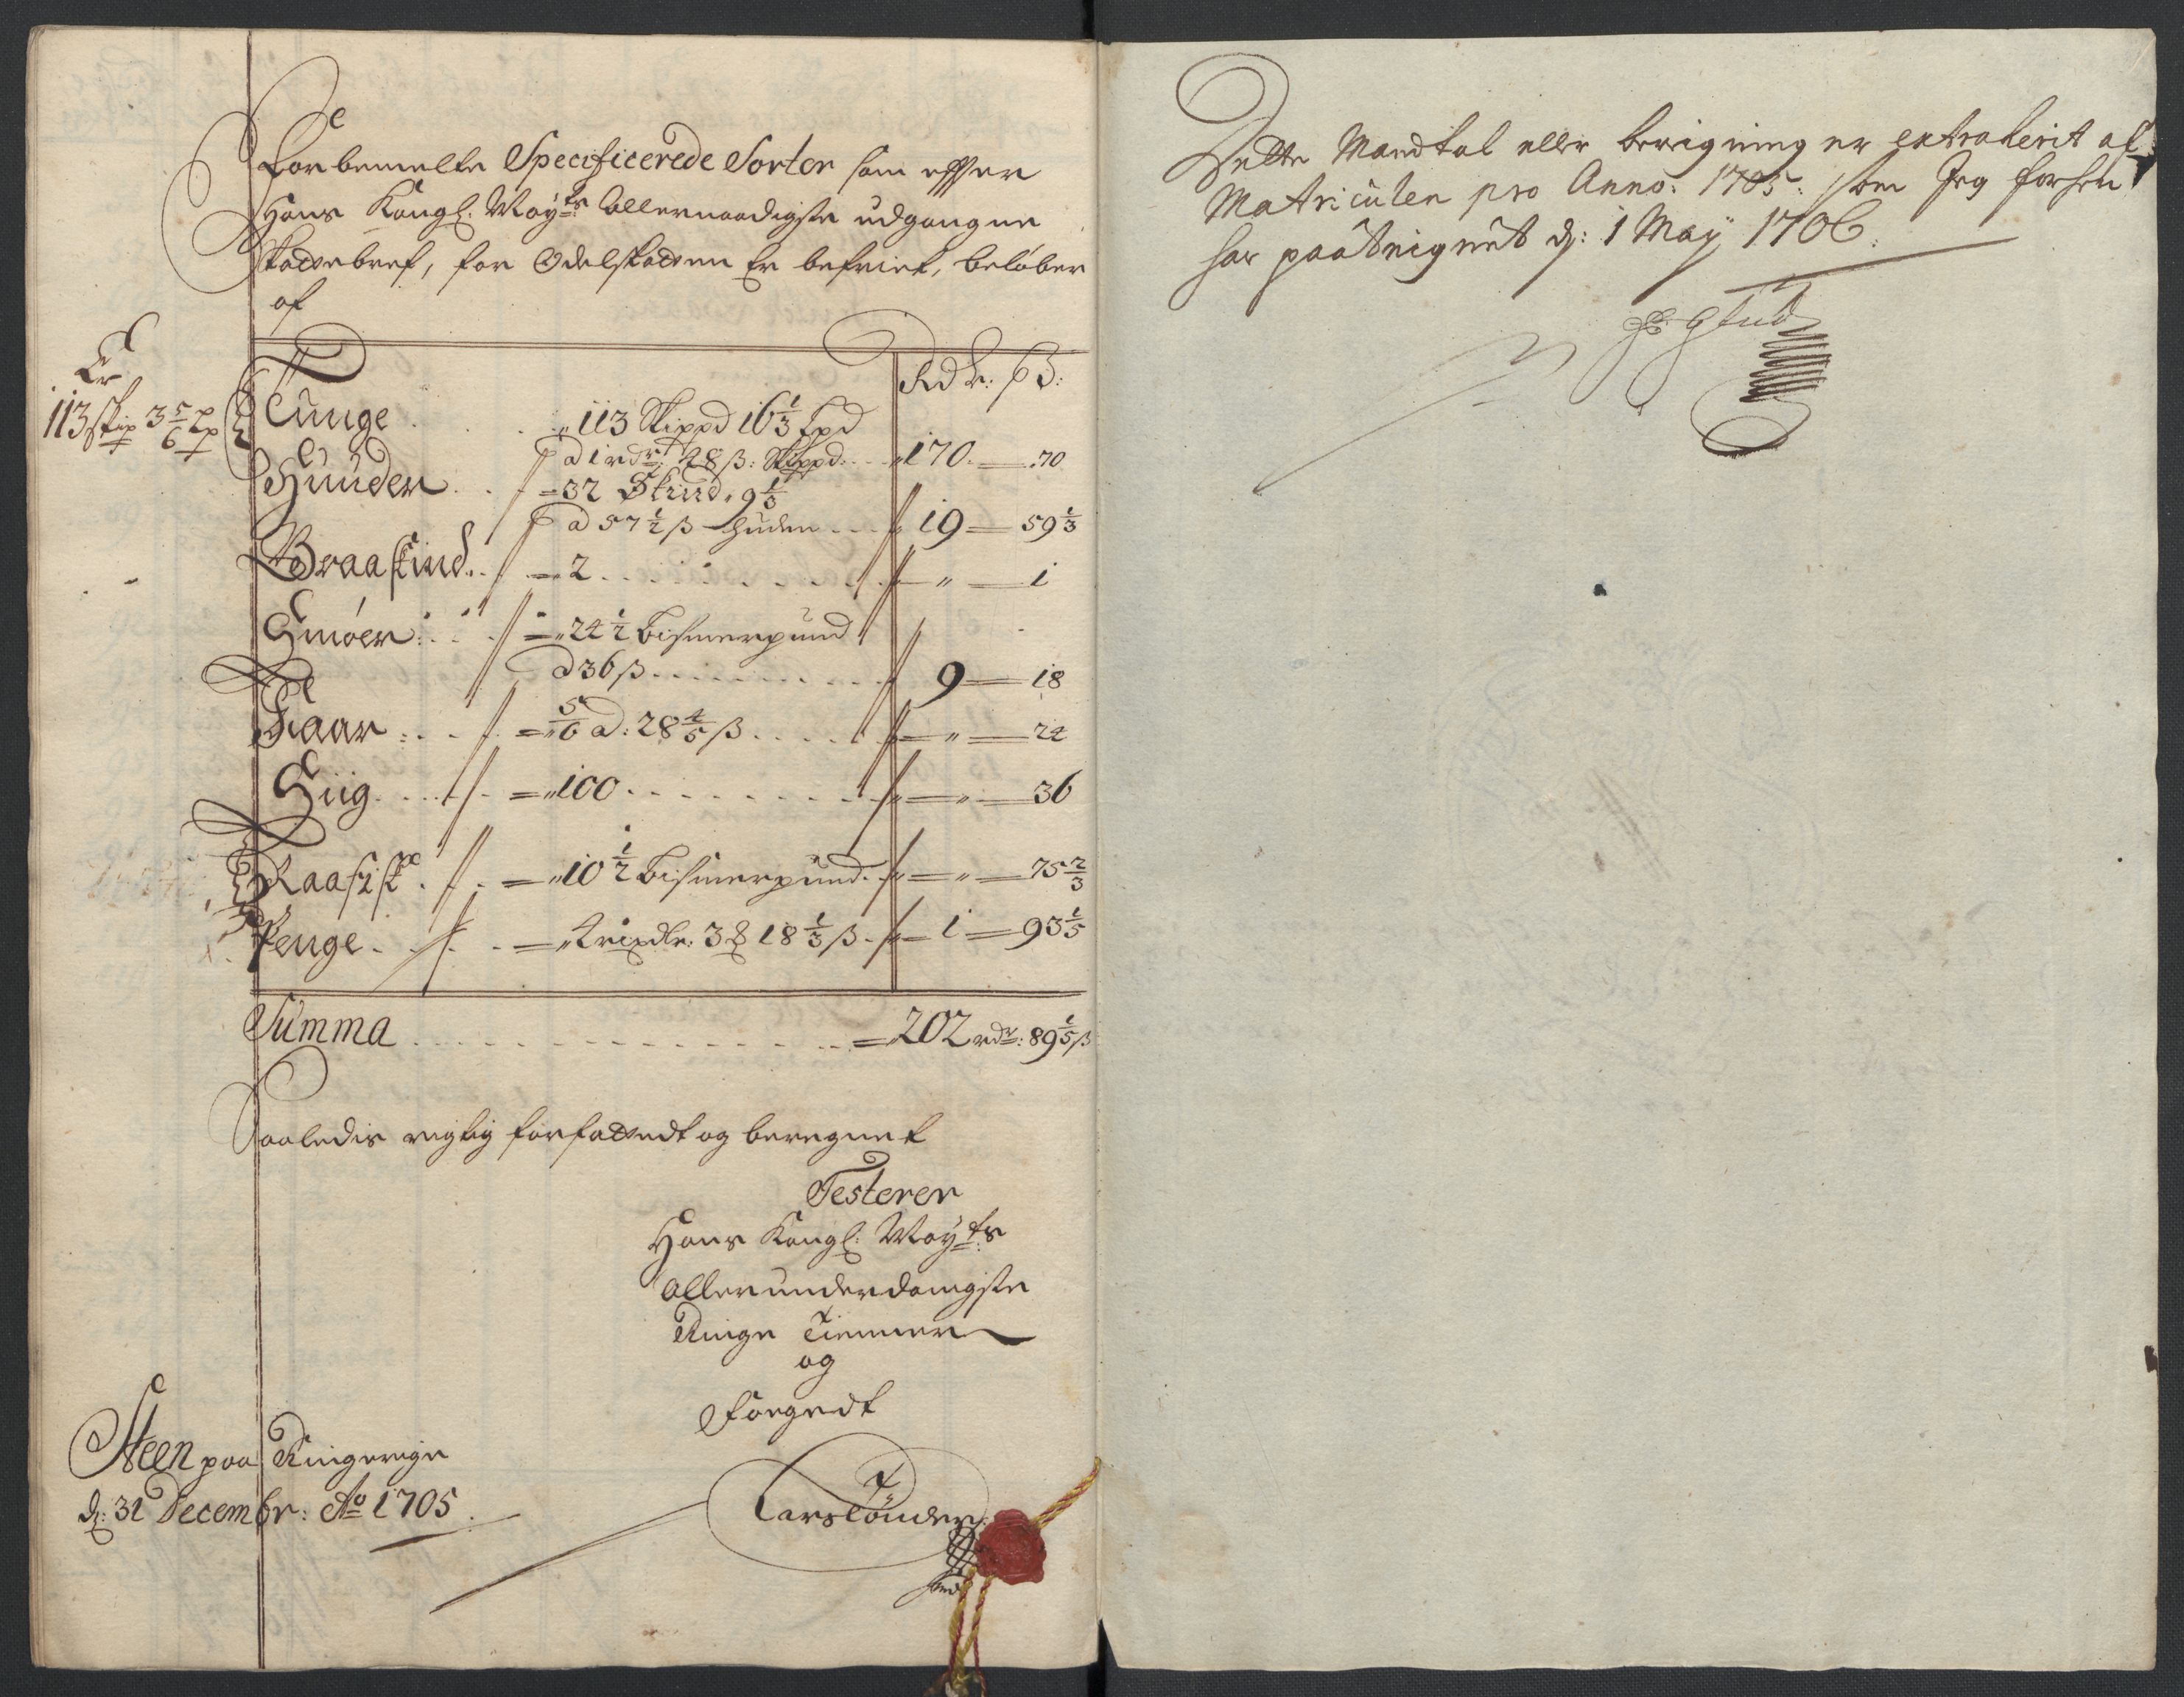 Forbemelte Specificerede Sorter som effter
Hans Kongl: May:ts Allernaadigste udgangne
Skattebref, for Odelskatten Er befriet, beløber
af
Rdr: ß:
Er
113 skip 3 5/6 Lp
Tunge . . . 113 Skippd 16 1/3 Lpd
a 1 rdr: 48 ß: Skippd: . . 170 — 70
Huuder . . = 32 Skind, 9 1/3
a 57 1/2 ß huden . . . 19 — 59 1/3
Graaskind . . = 2 . . . . . . . — " — 1
Smøer . . . = 24 1/2 Bismerpund
a 36 ß . . . . . . . . 9 — 18
Faar . . . = 5/6 a: 28 4/5 ß . . . . — " — 24
Siig . . . . = 100 . . . . . . . . — " — 36
Raafisk . . = 10 1/2 Bismerpund . — " — 75 2/3
Penge . . . = 4 rixdlr: 3 ₰ 18 1/3 ß . — 1 — 93 1/5
Summa . . . . . . . . . . = 202 rdr: 89 1/5 ß
Saaledis rigtig forfattedt og beregnet
Testerer
Hans Kongl: May:ts
Allerunderdanigste
Ringe Tienner
og
Foegedt
Steen paa Ringerige
d: 31 Decembr: Ao 1705
Lars Tønder
Dette Mandtal eller beregning er extraherit af
Matriculen pro Anno: 1705: som Jeg forhen
har paateignet d: 1 May 1706.